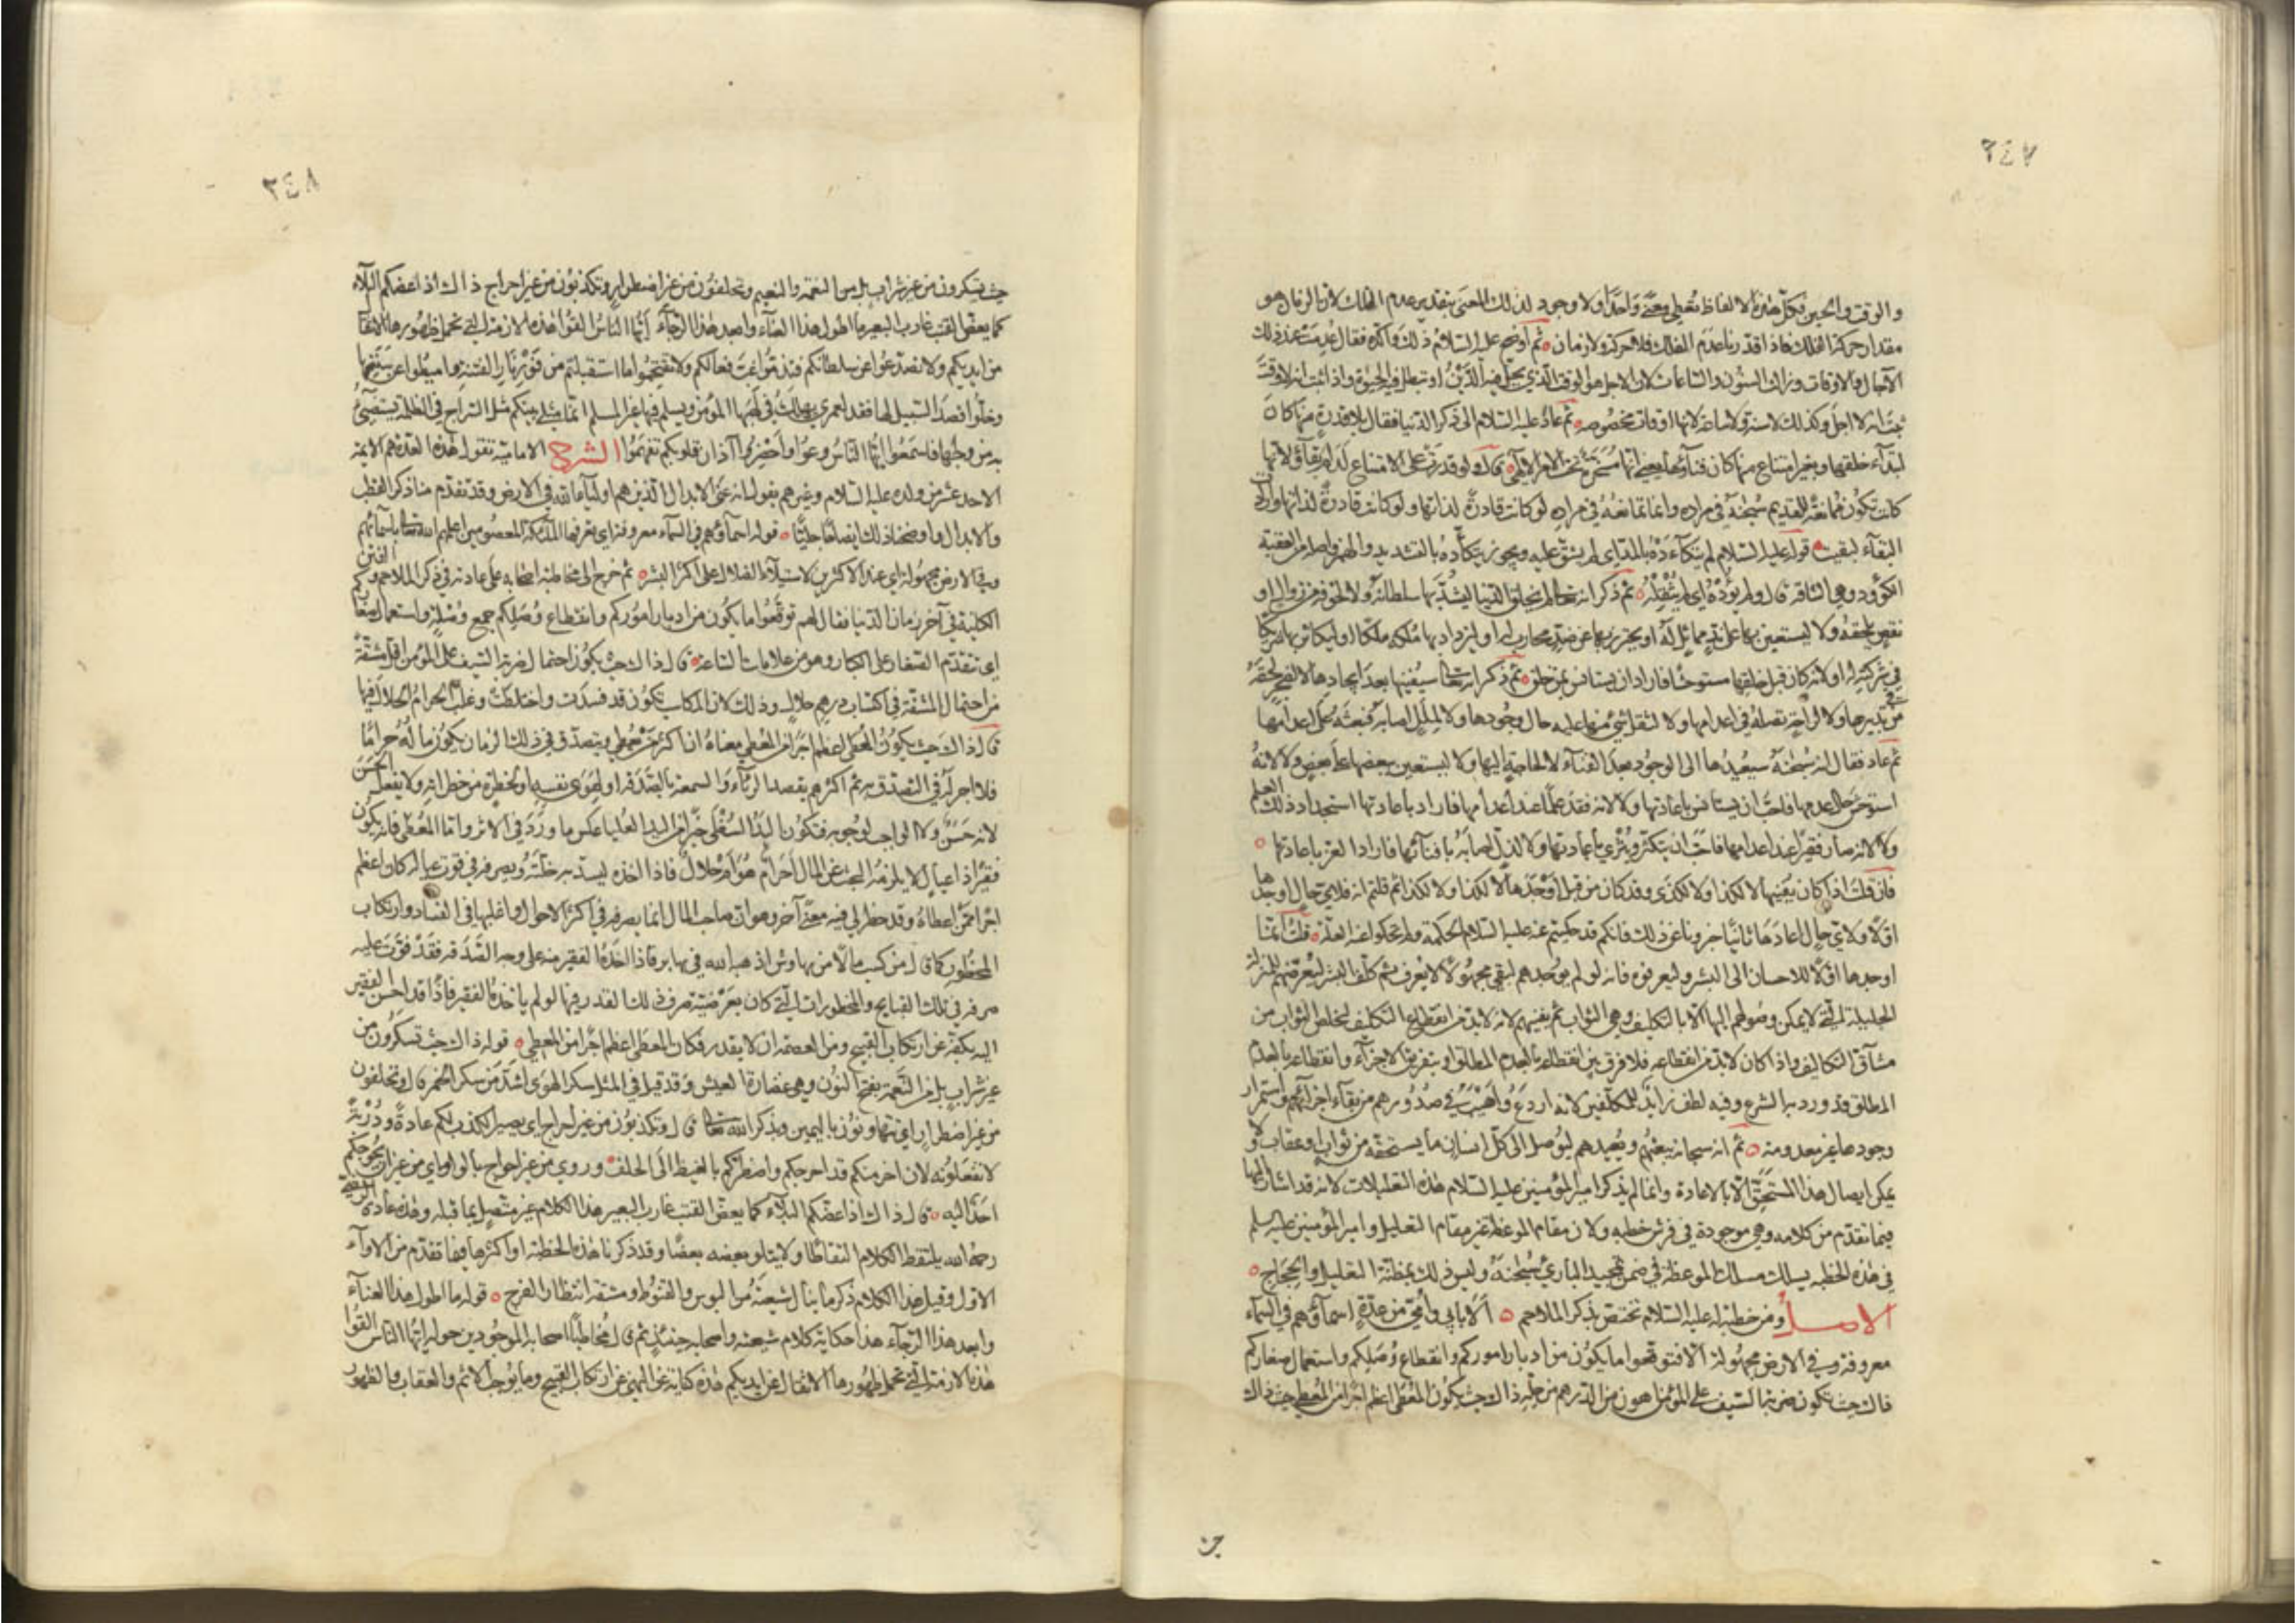 ٢٤٧
والوقت والحين وكل هذه الالفاظ تعطى معنى واحدًا ولا وجود لذلك المعنى بتقدير عدم الفلك لان الزمان هو
مقدار حركة الفلك فاذا قدرنا عدم الفلك فلا حركة ولا زمان ثم اوضح عليه السلام ذلك واكده فقال عدمت عند ذلك
الآجال والاوقات وزالت السنون والساعات لان الاجل هو الوقت الذي يحل فيه الدين او تبطل فيه الحيوة واذا ثبت انه لا وقت
ثبت انه لا اجل وكذلك لا سنة ولا ساعة لانها اوقات مخصوصة ثم عاد عليه السلام الى ذكر الدنيا فقال بلا قدرة منها كان
ابتدآء خلقها وبغير امتناع منها كان فنآؤها يعنى انها مسخرة تحت الامر الالهى قال ولو قدرت على الامتناع لدام بقاؤها لانها
كانت تكون ممانعة للقديم سبحنه في مراده وانما تمانعه في مراده لو كانت قادرة لذاتها ولو كانت قادرة لذاتها وارادت
البقآء لبقيت قوله عليه السلام لم يتكآءده بالمد اى لم يشق عليه ويجوز يتكأده بالتشديد والهمز واصله من العقبة
الكؤود وهى الشاقة قال ولم يؤده اى لم يثقله ثم ذكر انه تعالى لم يخلق الدنيا ليشد بها سلطانه ولا لخوفه من زوال او
نقص يلحقه ولا ليستعين بها على ند مماثل له او يحترز بها عن ضد محارب له او ليزداد بها ملكه ملكا او ليكاثر بها شريكا
في شركته له او لانه كان قبل خلقها مستوحشا فاراد ان يستانس بمن خلق ثم ذكر انه تعالى سيفنيها بعد ايجادها لا لضجر لحقه
في تدبيرها ولا لراحة تصله في اعدامها ولا لثقل شئ منها عليه حال وجودها ولا لملل اصابه فبعثه على اعدامها
ثم عاد فقال انه سبحنه سيعيدها الى الوجود بعد الفنآء لا لحاجة اليها ولا ليستعين ببعضها على بعض ولا لانه
استوحش حال عدمها فاحب ان يستانس باعادتها ولا لانه فقد علما عند اعدامها فاراد باعادتها استجداد ذلك العلم
ولا لانه صار فقيرا عند اعدامها فاحب ان يتكثر ويثري باعادتها ولا لذل اصابه بافنائها فاراد العز باعادتها
فان قلت اذا كان يفنيها لا لكذا ولا لكذا وقد كان من قبل اوجدها لا لكذا ولا لكذا ثم قلتم انه فلاي حال اوجدها
اولا ولاي حال اعادها ثانيا خبرونا عن ذلك فانكم قد حكيتم عنه عليه السلام الحكمة ولم تحكوا عنه العلة قلت انما
اوجدها اولا للاحسان الى البشر وليعرفوه فانه لو لم يوجدهم لبقى مجهولا لا يعرف ثم كلف البشر ليعرضهم للمنزلة
الجليلة التي لا يمكن وصولهم اليها الا بالتكليف وهي الثواب ثم يفنيهم لانه لا بد من انقطاع التكليف ليخلص الثواب من
مشآق التكاليف واذا كان لا بد من انقطاعه فلا فرق بين انقطاعه بالعدم المطلق او بتفريق الاجزآء وانقطاعه بالعدم
المطلق قد ورد به الشرع وفيه لطف زايد للمكلفين لانه اردع واهيب في صدورهم من بقآء اجزائهم واستمرار
وجودها غير معدومة ثم انه سبحانه يبعثهم ويعيدهم ليوصل الى كل انسان ما يستحقه من ثواب او عقاب ولا
يمكن ايصال هذا المستحق الا بالاعادة وانما لم يذكر امير المؤمنين عليه السلام هذه التعليلات لانه قد اشار اليها
فيما تقدم من كلامه وهي موجودة في فرش خطبه ولان مقام الموعظة غير مقام التعليل وامير المؤمنين عليه السلم
في هذه الخطبه يسلك مسلك الموعظة في ضمن تمجيد الباري سبحنه وليس ذلك بمظنة التعليل والحجاج
الاصل ومن خطبة له عليه السلام تختص بذكر الملاحم الا بابي وامي من عدة اسمآؤهم في السمآء
معروفة وفي الارض مجهولة الا فتوقعوا ما يكون من ادبار اموركم وانقطاع وصلكم واستعمال صغاركم
ذاك حيث تكون ضربة السيف على المؤمن اهون من الدرهم من حله ذاك حيث يكون المعطى اعظم اجرا من المعطي حيث ذاك
حيث
٢٤٨
حيث تسكرون من غير شراب بل من النعمة والنعيم وتحلفون من غير اضطرار وتكذبون من غير احراج ذاك اذا عضكم البلآء
كما يعض القتب غارب البعير ما اطول هذا العنآء وابعد هذا الرجآء ايها الناس القوا هذه الازمة التي تحمل ظهورها الاثقال
من ايديكم ولا تصدعوا عن سلطانكم فتذموا غب فعالكم ولا تقتحموا ما استقبلتم من فور نار الفتنة واميطوا عن سننها
وخلوا قصد السبيل لها فقد لعمري يهلك في لهبها المؤمن ويسلم فيها غير المسلم انما مثلي بينكم مثل السراج في الظلمة يستضئ
به من ولجها فاسمعوا ايها الناس وعوا واحضروا آذان قلوبكم تفهموا الشرح الامامية تقول هذه العدة هم الائمة
الاحد عشر من ولده عليه السلام وغيرهم يقول انه عنى الابدال الذين هم اوليآء الله في الارض وقد تقدم منا ذكر القطب
والابدال واوضحنا ذلك ايضاحا جليا قوله اسماؤهم في السمآء معروفة اي تعرفها الملائكة المعصومين اعلمهم الله تعالى باسمائهم
وفي الارض مجهولة اي عند الاكثرين لاستيلآء الضلال على اكثر البشر ثم خرج الى مخاطبة اصحابه على عادته في ذكر الملاحم والفتن
الكائنة في آخر زمان الدنيا فقال لهم توقعوا ما يكون من ادبار اموركم وانقطاع وصلكم جمع وصلة واستعمال صغاركم
اي تتقدم الصغار على الكبار وهو من علامات الساعة قال ذاك حيث يكون احتمال ضربة السيف على المؤمن اقل مشقة
من احتمال المشقة في اكتساب درهم حلال وذلك لان المكاسب تكون قد فسدت واختلطت وغلب الحرام الحلال فيها
قال ذاك حيث يكون المعطى اعظم اجرا من المعطي معناه ان اكثر من يعطي ويتصدق في ذلك الزمان يكون ماله حراما
فلا اجر له في التصدق به ثم اكثرهم يقصد الرئآء والسمعة بالصدقة او لهوى نفسه او لخطرة من خطراته ولا يفعل الحسن
لانه حسن ولا الواجب لوجوبه فتكون اليد السفلى خيرا من اليد العليا عكس ما ورد في الاثر واما المعطى فانه يكون
فقيرا ذا عيال لا يلزمه البحث عن المال احرام هو ام حلال فاذا اخذه ليسد به خلته ويصرفه في قوت عياله كان اعظم
اجرا ممن اعطاه وقد خطر لي فيه معنى آخر وهو ان صاحب المال انما يصرفه في اكثر الاحوال واغلبها في الفساد وارتكاب
المحظور كما قال من كسب مالا من نهاوش اذهبه الله في نهابر فاذا اخذه الفقير منه على وجه الصدقة فقد فوت عليه
صرفه في تلك القبايح والمحظورات التي كان بعرضيته صرف ذلك القدر فيها لو لم ياخذه الفقير فاذا قد احسن الفقير
اليه بكفه عن ارتكاب القبيح ومن العصمة ان لا يقدر فكان المعطى اعظم اجرا من المعطي قوله ذاك حيث تسكرون من
غير شراب بل من النعمة بفتح النون وهي غضارة العيش وقد قيل في المثل سكر الهوى اشد من سكر الخمر قال وتحلفون
من غير اضطرار اي تتهاونون باليمين وبذكر الله تعالى قال وتكذبون من غير احراج اي يصير الكذب لكم عادة ودربة
لا تفعلونه لان آخر منكم قد احرجكم واضطركم بالغيظ الى الحلف وروي من غير احواج بالواو اي من غير ان يحوجكم
احد اليه قال ذاك اذا عضكم البلآء كما يعض القتب غارب البعير هذا الكلام غير متصل بما قبله وهذه عادة الرضي
رحمه الله يلتقط الكلام التقاطا ولا يتلو بعضه بعضا وقد ذكرنا هذه الخطبة او اكثرها فيما تقدم من الاجزآء
الاول وقبل هذا الكلام ذكر ما ينال شيعته من البوس والقنوط ومشقة انتظار الفرج قوله ما اطول هذا العنآء
وابعد هذا الرجآء هذا حكاية كلام شيعته واصحابه حينئذ ثم قال مخاطبا اصحابه الموجودين حوله ايها الناس القوا
هذه الازمة التي تحمل ظهورها الاثقال عن ايديكم هذه كناية عن النهى عن ارتكاب القبيح وما يوجب الاثم والعقاب والظهور